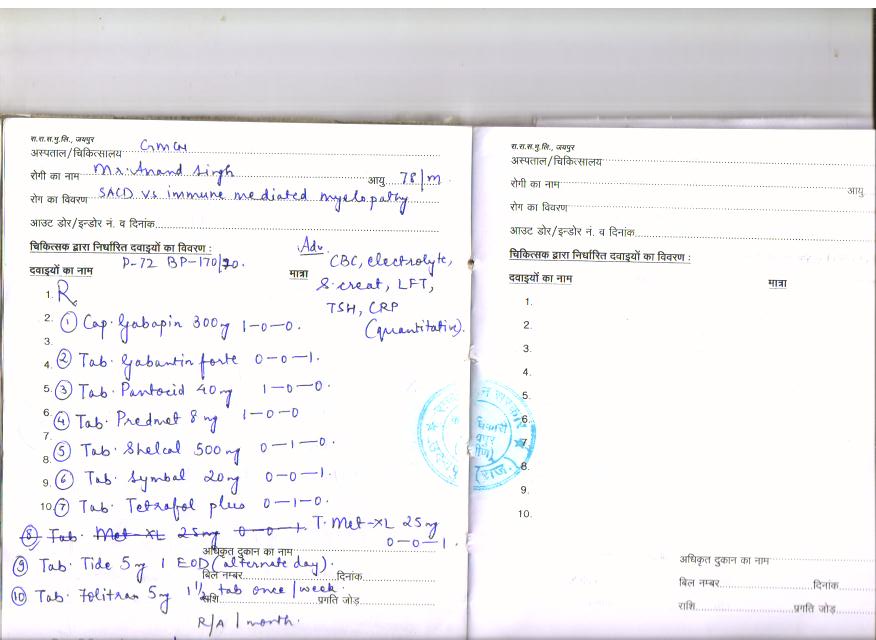 रा.रा.स.मु.लि., जयपुर
अस्पताल/चिकित्सालय GMCH
रोगी का नाम Mr. Anand Singh आयु 78/M
रोग का विवरण SACD vs immune mediated myelopathy
आउट डोर/इन्डोर नं. व दिनांक
चिकित्सक द्वारा निर्धारित दवाइयों का विवरण :
P-72 BP-170/70.
दवाइयों का नाम मात्रा
Adv.
CBC, electrolyte,
S. creat, LFT,
TSH, CRP
(quantitative).
1. Rx
2. ① Cap. Gabapin 300mg 1-0-0.
3.
4. ② Tab. Gabantin forte 0-0-1.
5. ③ Tab. Pantocid 40mg 1-0-0.
6. ④ Tab. Predmet 8mg 1-0-0
7.
8. ⑤ Tab. Shelcal 500mg 0-1-0.
9. ⑥ Tab. Symbal 20mg 0-0-1.
10. ⑦ Tab. Tetrafol plus 0-1-0.
⑧ Tab. Met-XL 25mg 0-0-1. T. Met-XL 25mg
0-0-1.
अधिकृत दुकान का नाम
⑨ Tab. Tide 5mg 1 EOD (alternate day).
बिल नम्बर दिनांक
⑩ Tab. Folitrax 5mg 1½ tab once/week.
राशि प्रगति जोड़
R/A 1 month.
रा.रा.स.मु.लि., जयपुर
अस्पताल/चिकित्सालय
रोगी का नाम आयु
रोग का विवरण
आउट डोर/इन्डोर नं. व दिनांक
चिकित्सक द्वारा निर्धारित दवाइयों का विवरण :
दवाइयों का नाम मात्रा
1.
2.
3.
4.
5.
6.
7.
8.
9.
10.
अधिकृत दुकान का नाम
बिल नम्बर दिनांक
राशि प्रगति जोड़